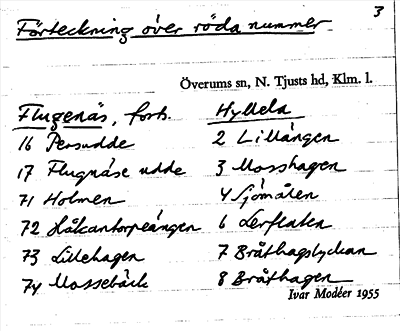 3
Förteckning över röda nummer
Överums sn, N. Tjusts hd, Klm. l.
Flugenäs, forts. Hyllela
16 Persudde 2 Lillängen
17 Flugnäse udde 3 Mosshagen
71 Holmen 4 Sjömålen
72 Hålcantorpeängen 6 Lerflaten
73 Lillehagen 7 Bråthagslyckan
74 Mossebäck 8 Bråthagen
Ivar Modéer 1955